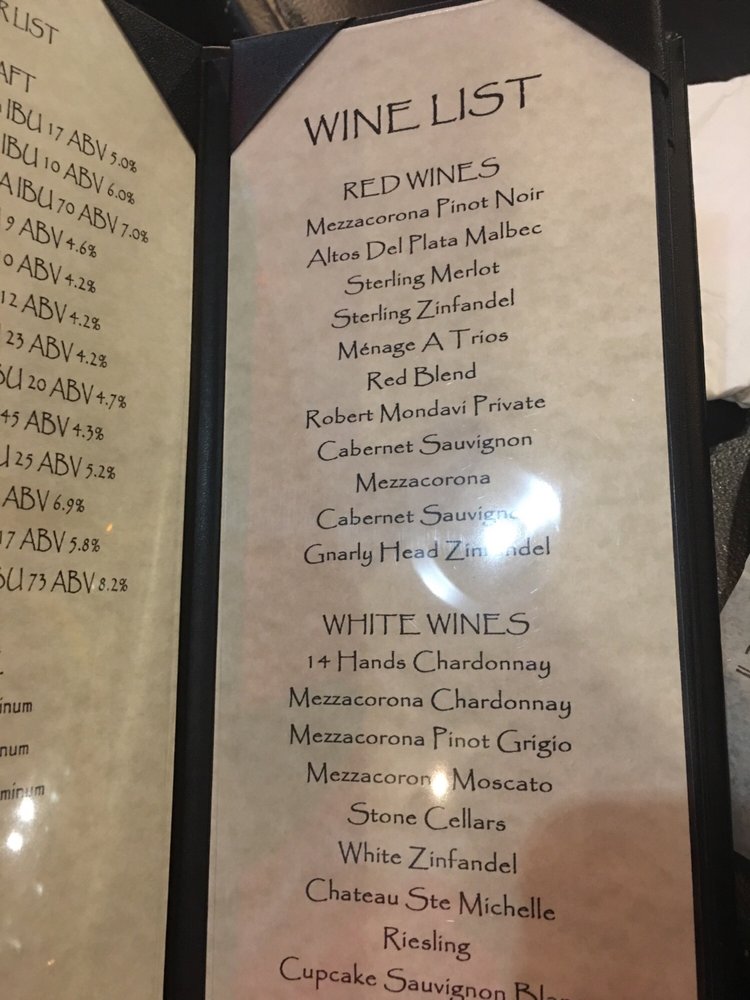 R LIST
AFT
IBU 17 ABV 5.0%
IBU 10 ABV 6.0%
A IBU 70 ABV 7.0%
9 ABV 4.6%
0 ABV 4.2%
12 ABV 4.2%
23 ABV 4.2%
BU 20 ABV 4.7%
45 ABV 4.3%
U 25 ABV 5.2%
ABV 6.9%
17 ABV 5.8%
BU 73 ABV 8.2%
inum
num
minum
WINE LIST
RED WINES
Mezzacorona Pinot Noir
Altos Del Plata Malbec
Sterling Merlot
Sterling Zinfandel
Ménage A Trios
Red Blend
Robert Mondavi Private
Cabernet Sauvignon
Mezzacorona
Cabernet Sauvigno
Gnarly Head Zinfandel
WHITE WINES
14 Hands Chardonnay
Mezzacorona Chardonnay
Mezzacorona Pinot Grigio
Mezzacorona Moscato
Stone Cellars
White Zinfandel
Chateau Ste Michelle
Riesling
Cupcake Sauvignon Blan